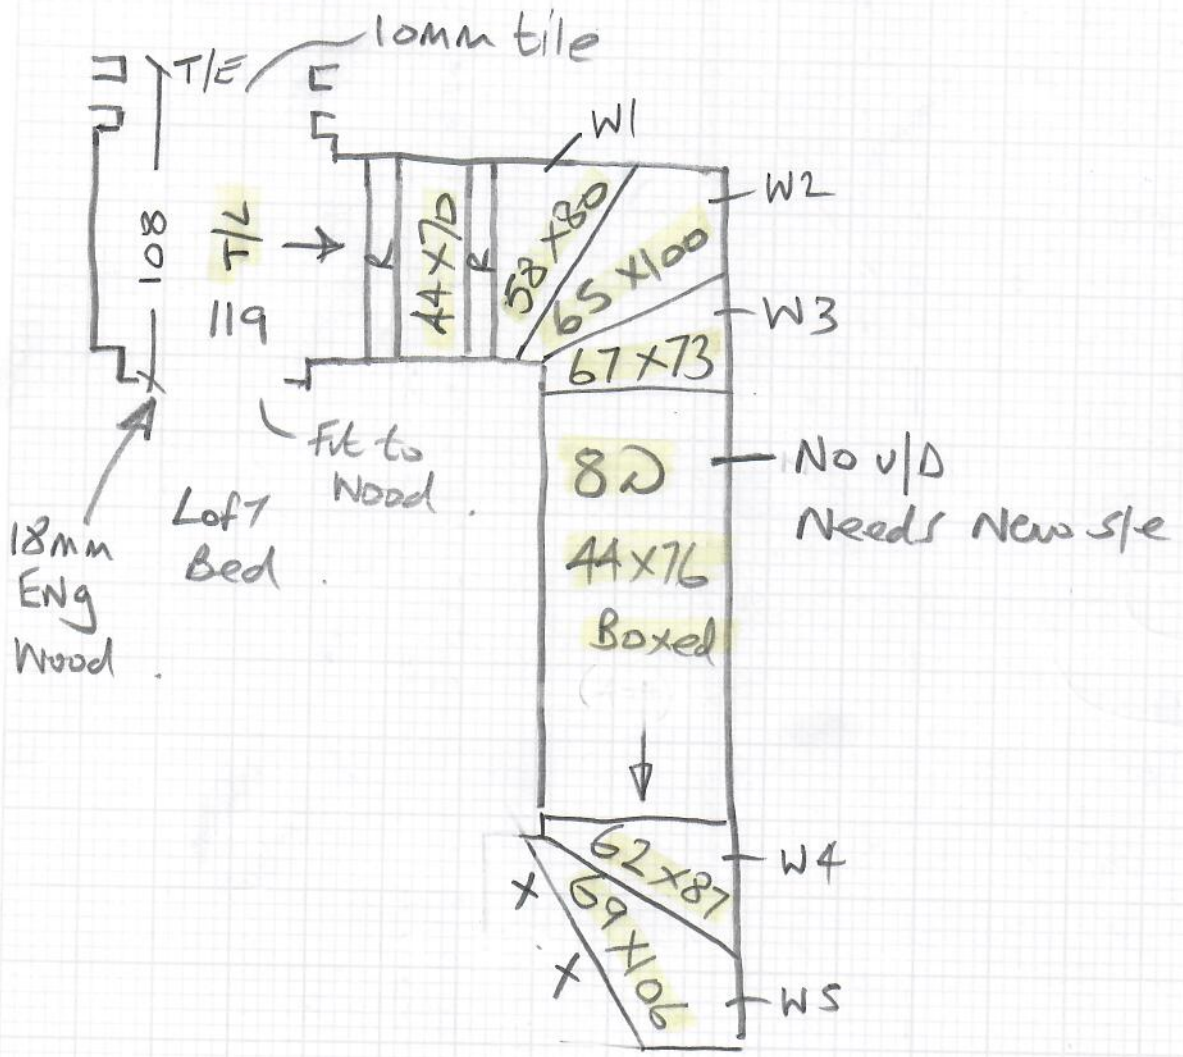 10mm tile
T/E
W1
W2
108
T/L
44 X 70
R
R
58 X 80
65 X 100
119
W3
67 X 73
Fit to
Wood.
8D
No U/D
Needs New s/e
Loft
Bed.
18mm
ENg
Wood.
44 X 76
Boxed
62 X 87
W4
X
69 X 106
X
W5